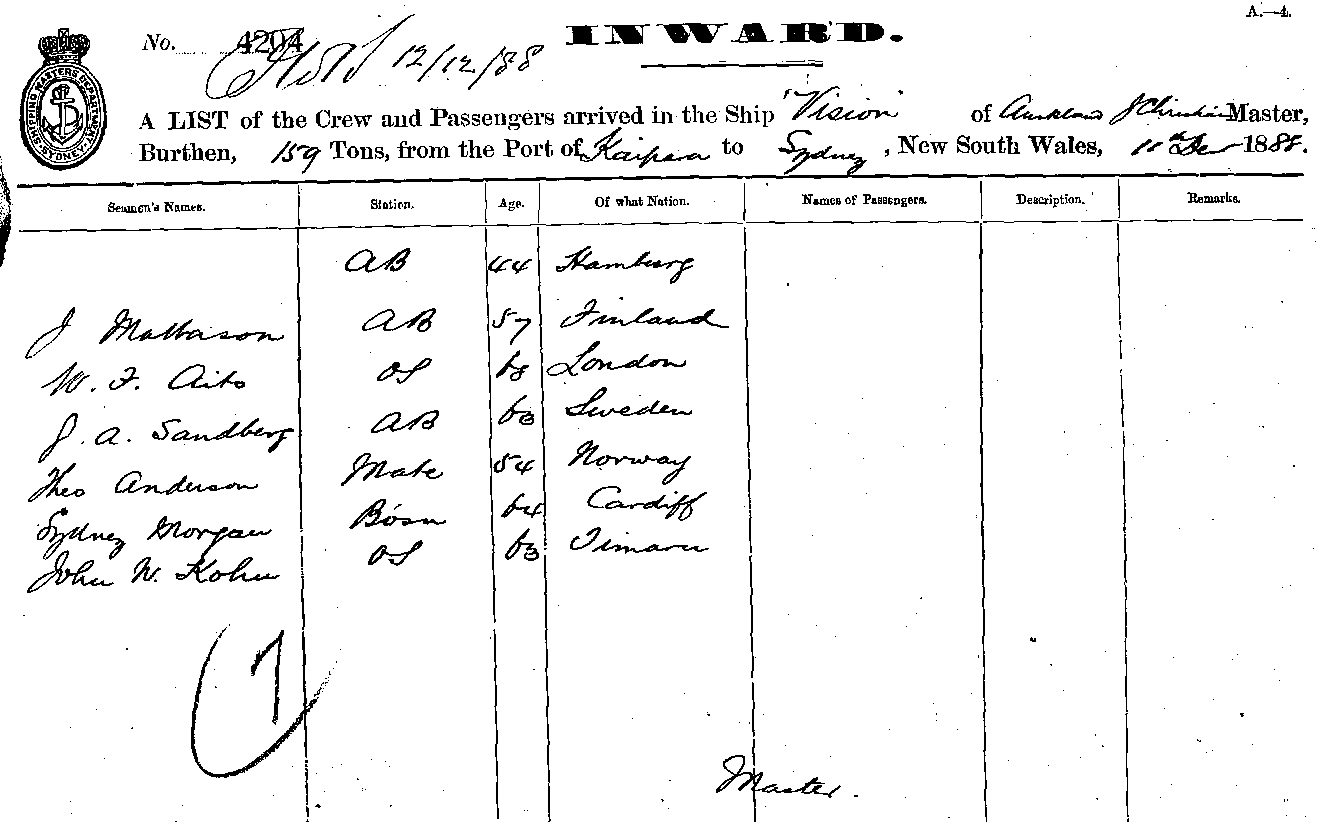 A.—4.
No. 4204
12/12/88
INWARD.
SHIPPING MASTERS DEPARTMENT SYDNEY
A LIST of the Crew and Passengers arrived in the Ship 'Vision' of Auckland J Master,
Burthen, 159 Tons, from the Port of Kaipara to Sydney, New South Wales, 11th Dec 1888.
Seamen's Names. Station. Age. Of what Nation. Names of Passengers. Description. Remarks.
AB 44 Hamburg
J Mattason AB 57 Finland
W. F. OS London
J. A. Sandberg AB Sweden
Theo Anderson Mate 54 Norway
Sydney Morgan Bosn Cardiff
John W. Kohn OS Timaru
7
Master.